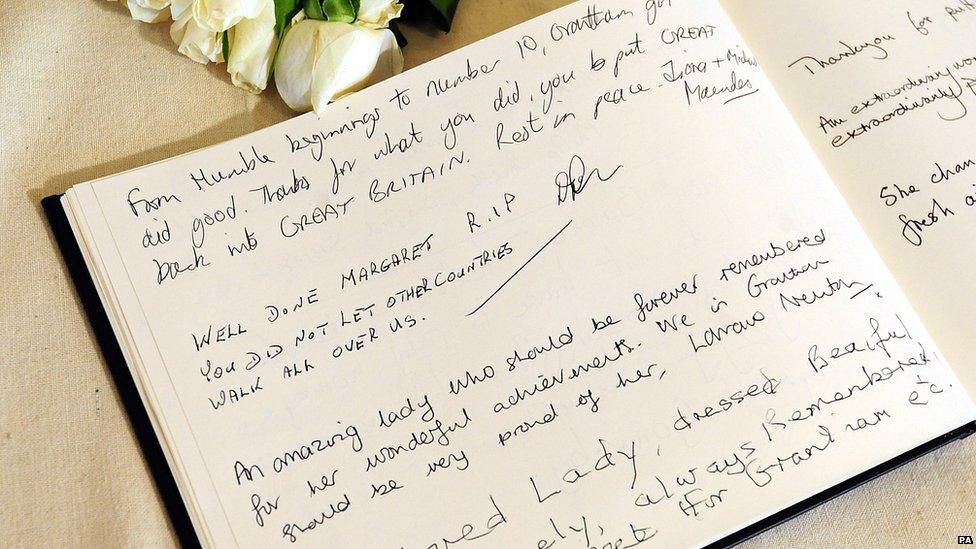 From Humble beginnings to Number 10, Grantham girl
did good. Thanks for what you did, you put GREAT
back into GREAT BRITAIN. Rest in peace.
WELL DONE MARGARET R.I.P
YOU DID NOT LET OTHER COUNTRIES
WALK ALL OVER US.
An amazing lady who should be forever remembered
for her wonderful achievements. We in Grantham
should be very proud of her,
Lady, dressed Beaiful,
always Remembered
for Grantham etc.
Thankyou for
An extraordinary
extraordinary
She chan
fresh ai
PA